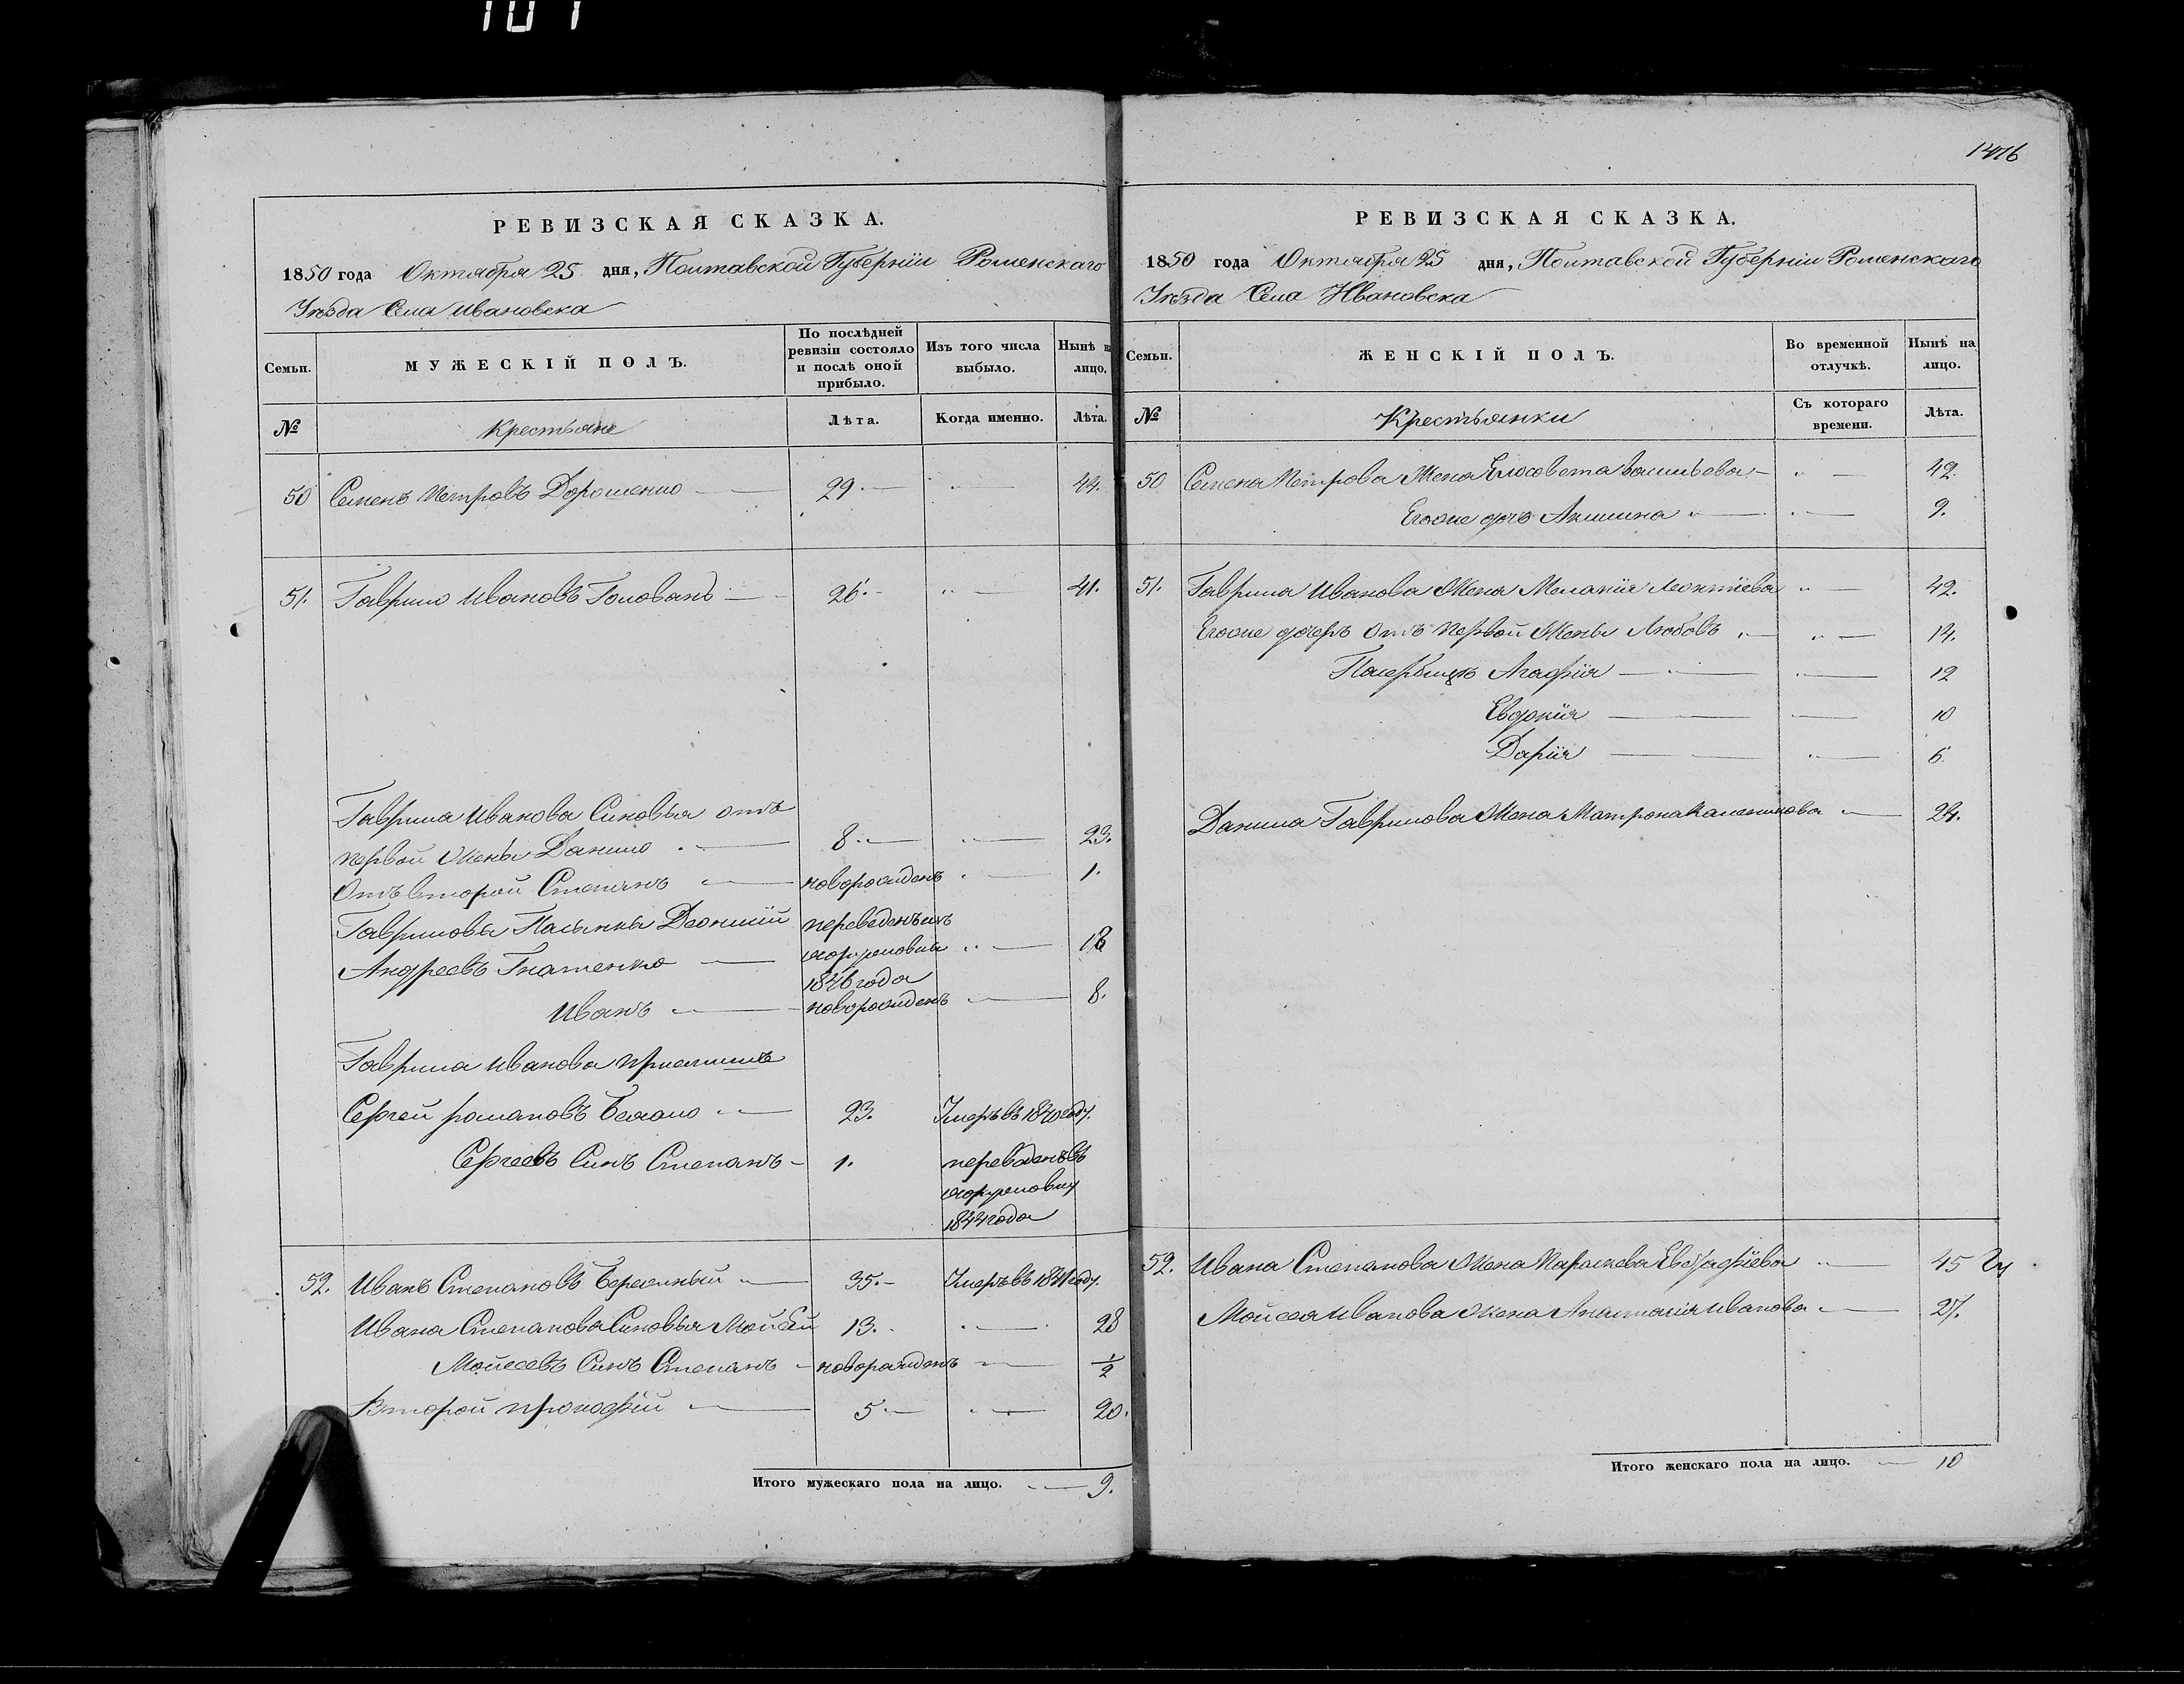 107
1476
РЕВИЗСКАЯ СКАЗКА.
1850 года Октября 25 дня, Полтавской Губерніи Роменскаго
Уезда Села Ивановска
Семьи. МУЖЕСКІЙ ПОЛЪ. По послѣдней ревизіи состояло и послѣ оной прибыло. Изъ того числа выбыло. Нынѣ н лицо.
№ Крестьяне Лѣта. Когда именно. Лѣта.
50 Семенъ Петровъ Дорошенко 29. 44.
51. Гаврило Ивановъ Голованъ 26. 41.
Гаврила Иванова Синовья отъ
первой жены Данило 8. 23.
Отъ второй Степанъ новорожденъ 1.
Гавриловы Пасынки Леонтий переведенъ
Андреевъ Гнатенко 18
1846 года
Иванъ новорожденъ 8.
Гаврила Иванова приемышъ
Сергей романовъ 23. Умеръ въ 1840 году.
Сергеевъ Синъ Степанъ 1. переведенъ въ
1844 года
52. Иванъ Степановъ Бережный 35. Умеръ въ 1841 году.
Ивана Степанова Синовья Мойсей 13. 28
Мойсеевъ Синъ Степанъ новорожденъ 1/2
Второй прокофій 5 20.
Итого мужескаго пола на лицо. 9.
РЕВИЗСКАЯ СКАЗКА.
1850 года Октября 25 дня, Полтавской Губерніи Роменскаго
Уезда Села Ивановска
Семьи. ЖЕНСКІЙ ПОЛЪ. Во временной отлучкѣ. Нынѣ на лицо.
№ Крестьянки Съ котораго времени. Лѣта.
50 Семена Петрова Жена Елисовета васильева 42.
Егоже дочь Акилина 9.
51. Гаврила Иванова Жена Меланія Леонтіева 42.
Егоже дочеръ Отъ первой Жены Любовъ 14.
Агафія 12
Евдокія 10
Дарія 6.
Данила Гаврилова Жена Матрона Каленикова 24.
52. Ивана Степанова Жена Параскева 45
Мойсея Иванова Жена Анастасія Иванова 27.
Итого женскаго пола на лицо. 10